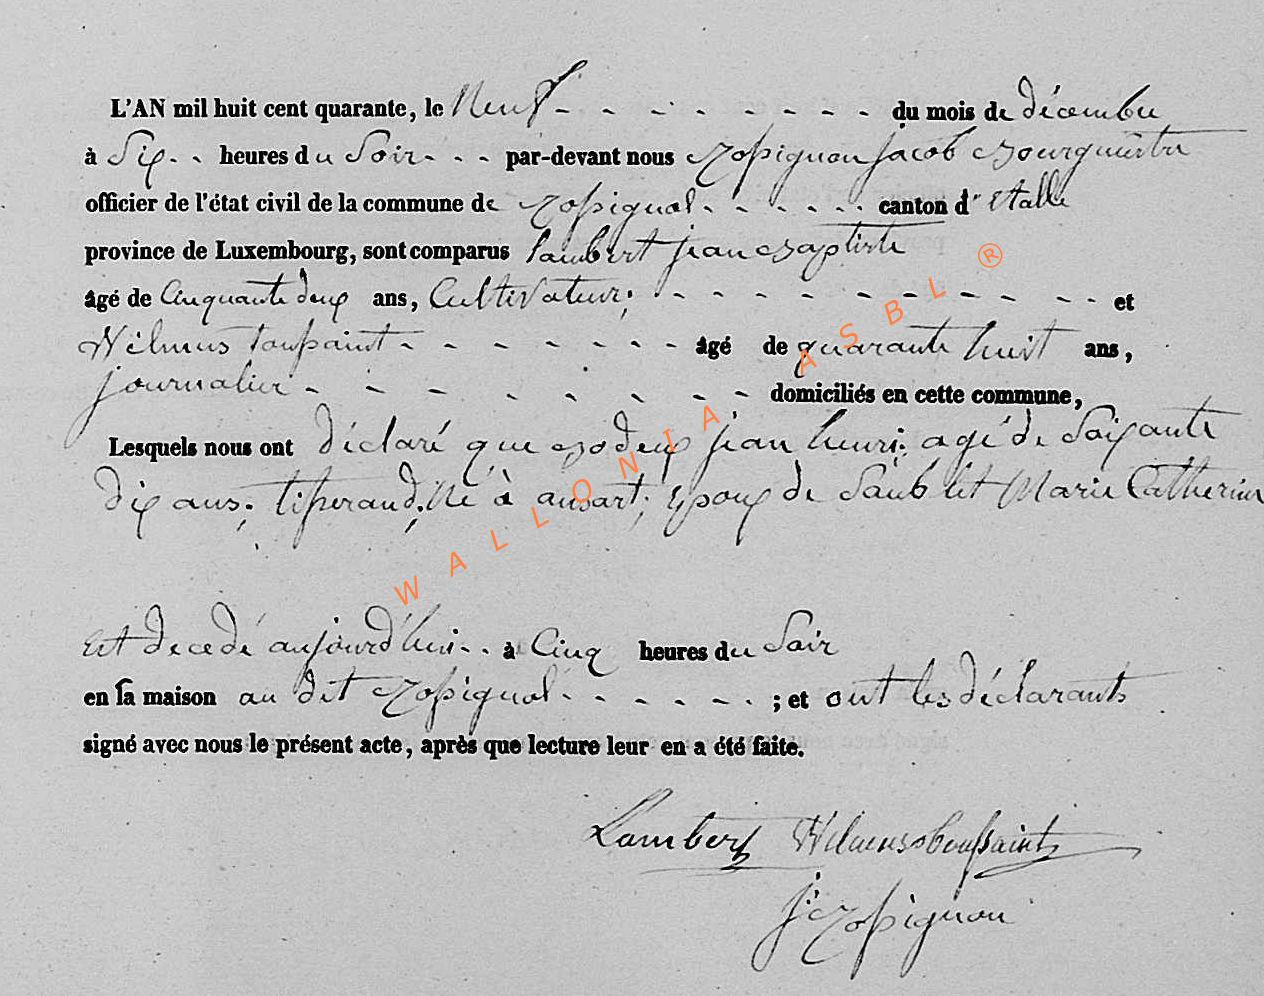 L'AN mil huit cent quarante, le Neuf - - - - - - - - du mois de décembre
à Six - - heures du Soir - - - par-devant nous Rossignon jacob Bourguestre
officier de l'état civil de la commune de Rossignol - - - - - - canton d' Etalle
province de Luxembourg, sont comparus Lambert jean Baptiste
âgé de Cinquante deux ans, Cultivateur; - - - - - - - - - - - et
Wilmus toussaint - - - - - - - âgé de quarante huit ans,
journalier - - - - - - - - domiciliés en cette commune,
Lesquels nous ont déclaré que jean henri; agé de Soixante
dix ans; tisserand; Né à ansart; Epoux de Marie Catherine
Est decedé aujourd'hui - - à Cinq heures du Soir
en sa maison au dit Rossignol - - - - - - ; et ont les déclarants
signé avec nous le présent acte, après que lecture leur en a été faite.
Lambert Wilmus toussaint
j: Rossignon
WALLONIA ASBL ®